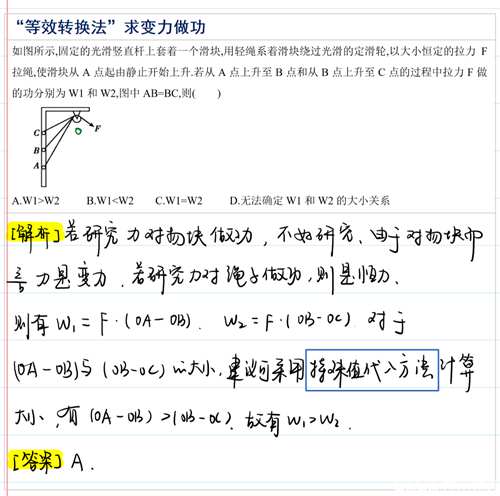 “等效转换法”求变力做功
如图所示,固定的光滑竖直杆上套着一个滑块,用轻绳系着滑块绕过光滑的定滑轮,以大小恒定的拉力 F
拉绳,使滑块从 A 点起由静止开始上升.若从 A 点上升至 B 点和从 B 点上升至 C 点的过程中拉力 F 做
的功分别为 W1 和 W2,图中 AB=BC,则( )
O
F
C
B
A
A.W1>W2 B.W1<W2 C.W1=W2 D.无法确定 W1 和 W2 的大小关系
[解析] 若研究力对物块做功,不好研究、由于对物块而
言力是变力.若研究力对绳子做功,则是恒力、
则有 W₁=F·(OA-OB). W₂=F·(OB-OC) 对于
(OA-OB)与(OB-OC)的大小,建议可采用特殊值代入方法计算
大小,有(OA-OB)>(OB-OC).故有W₁>W₂.
[答案] A.